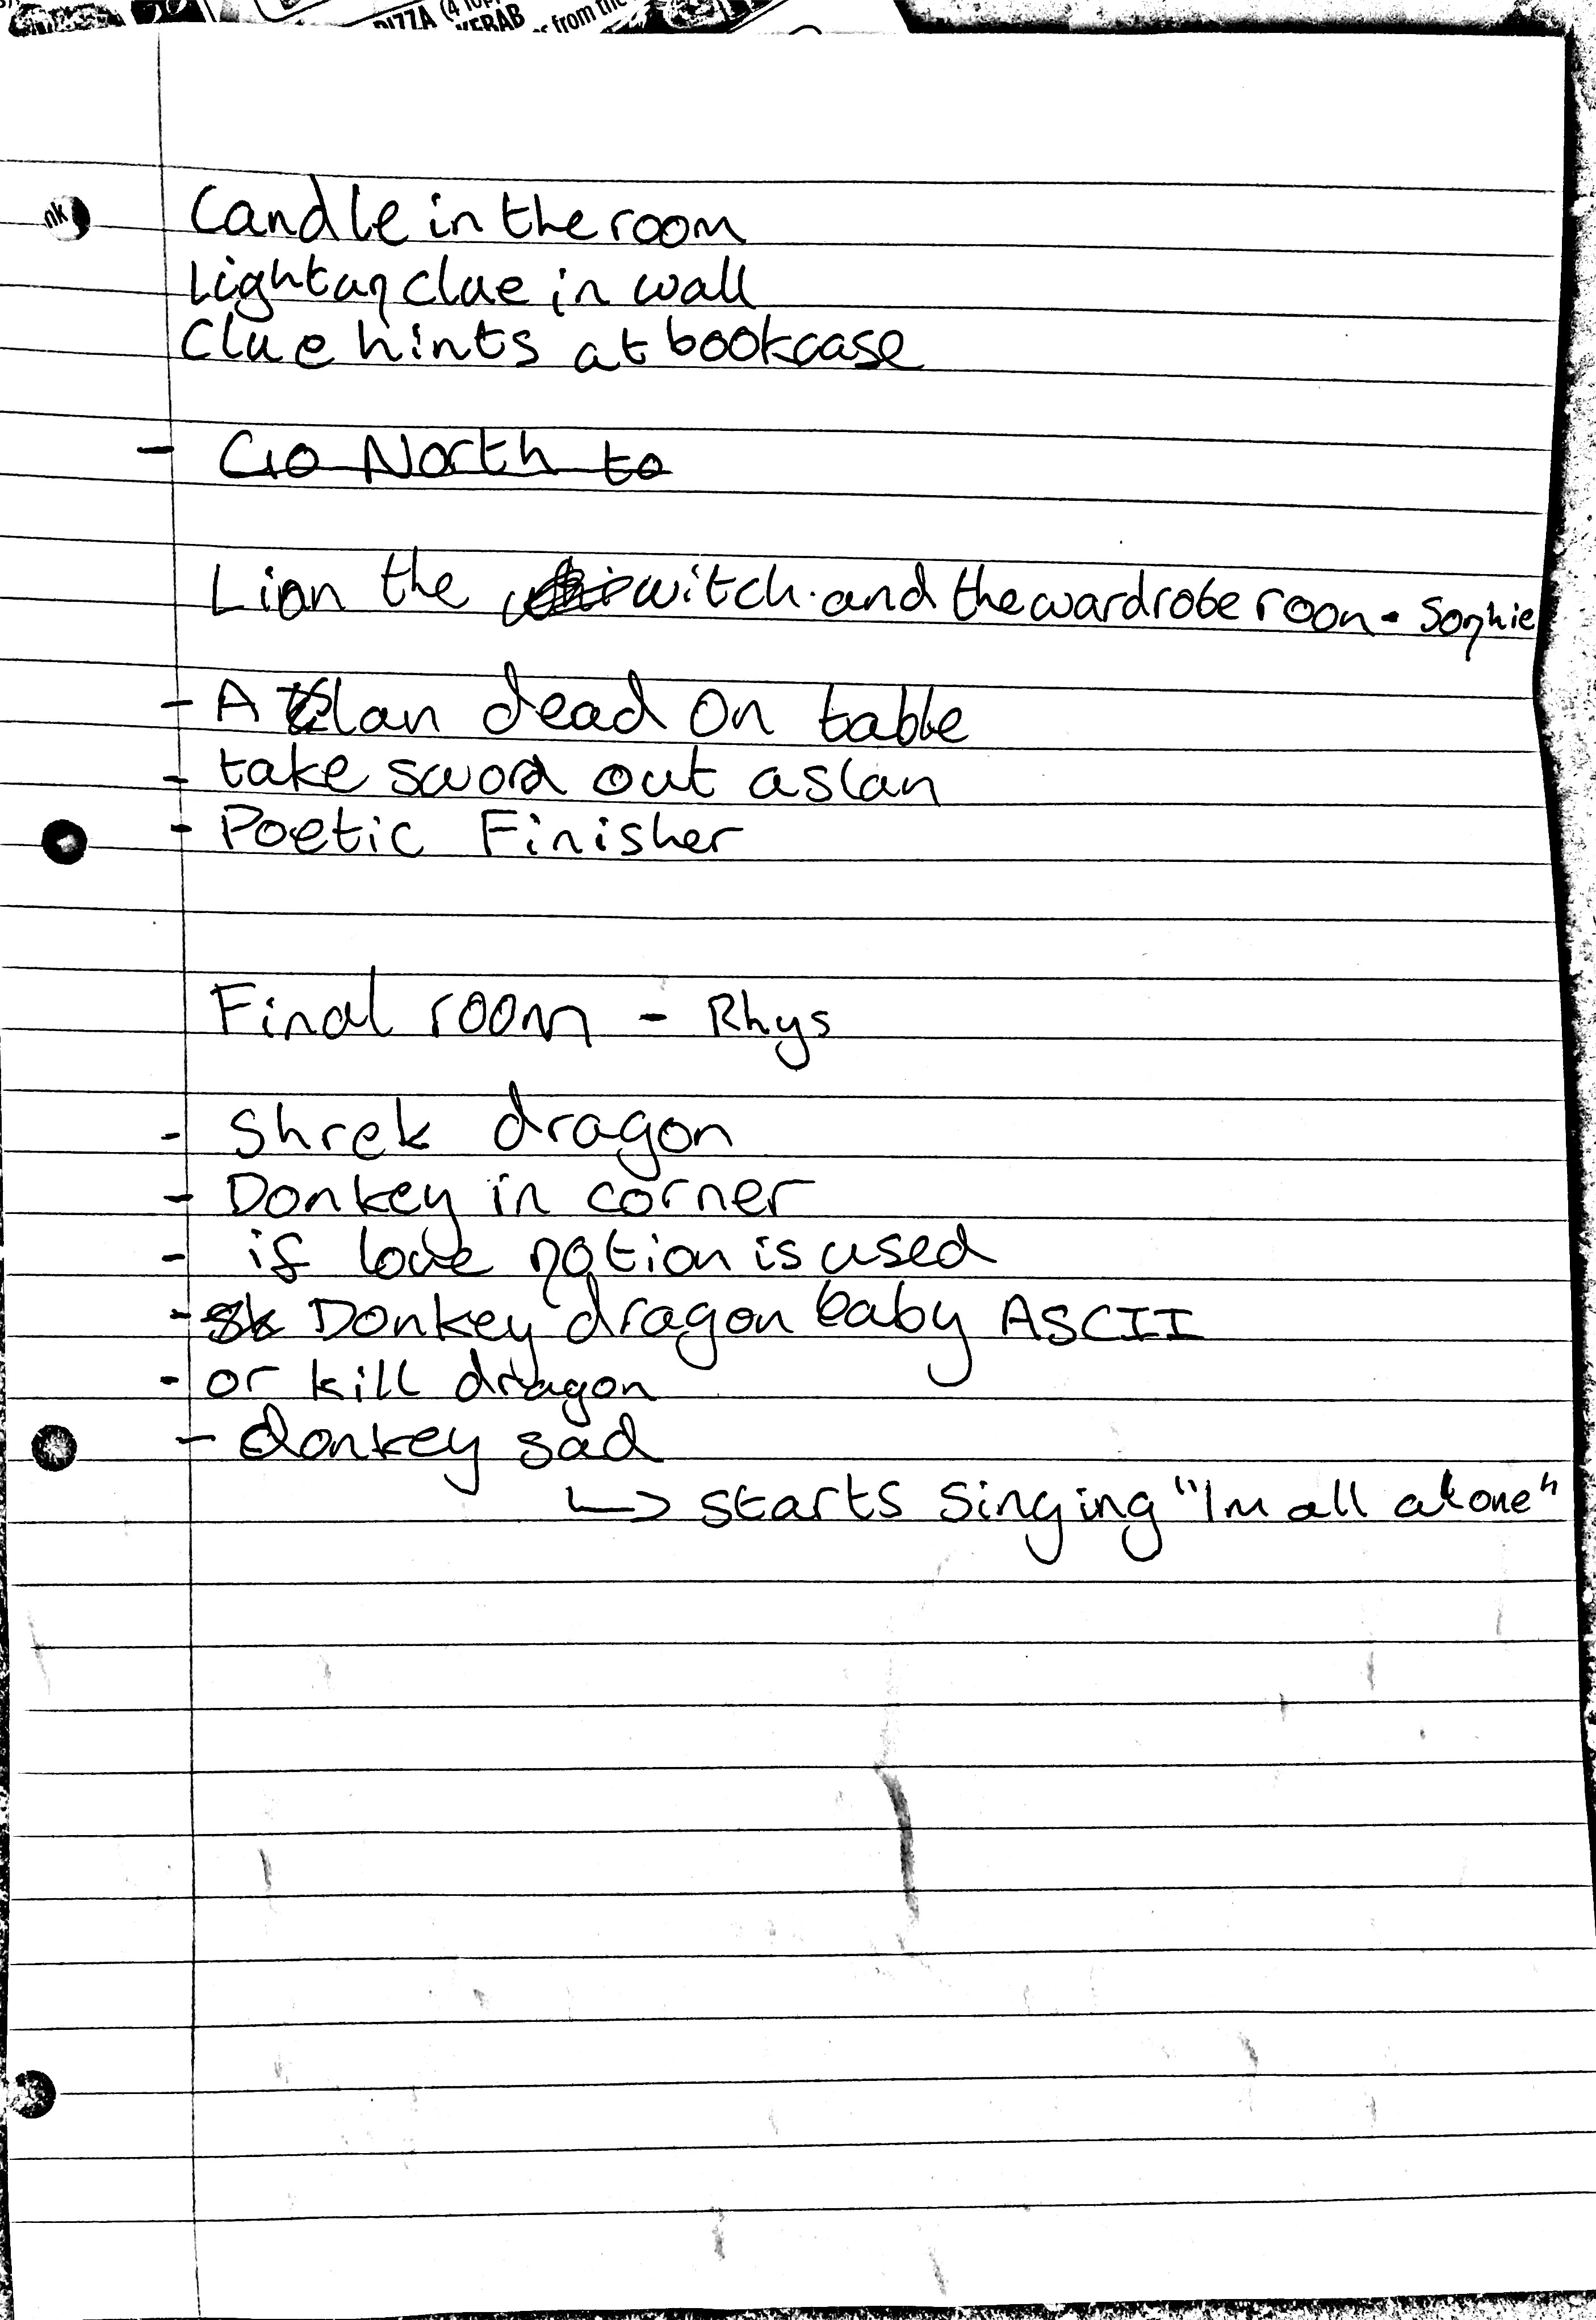 PIZZA (4 TOP
KEBAB
from the
nk
Candle in the room
Light up clue in wall
Clue hints at bookcase
- Go North to
Lion the witch and the wardrobe room - Sophie
- Aslan dead on table
- take sword out aslan
- Poetic Finisher
Final room - Rhys
- Shrek dragon
- Donkey in corner
- if love potion is used
- Donkey dragon baby ASCII
- or kill dragon
- donkey sad
↳ starts singing "Im all alone"